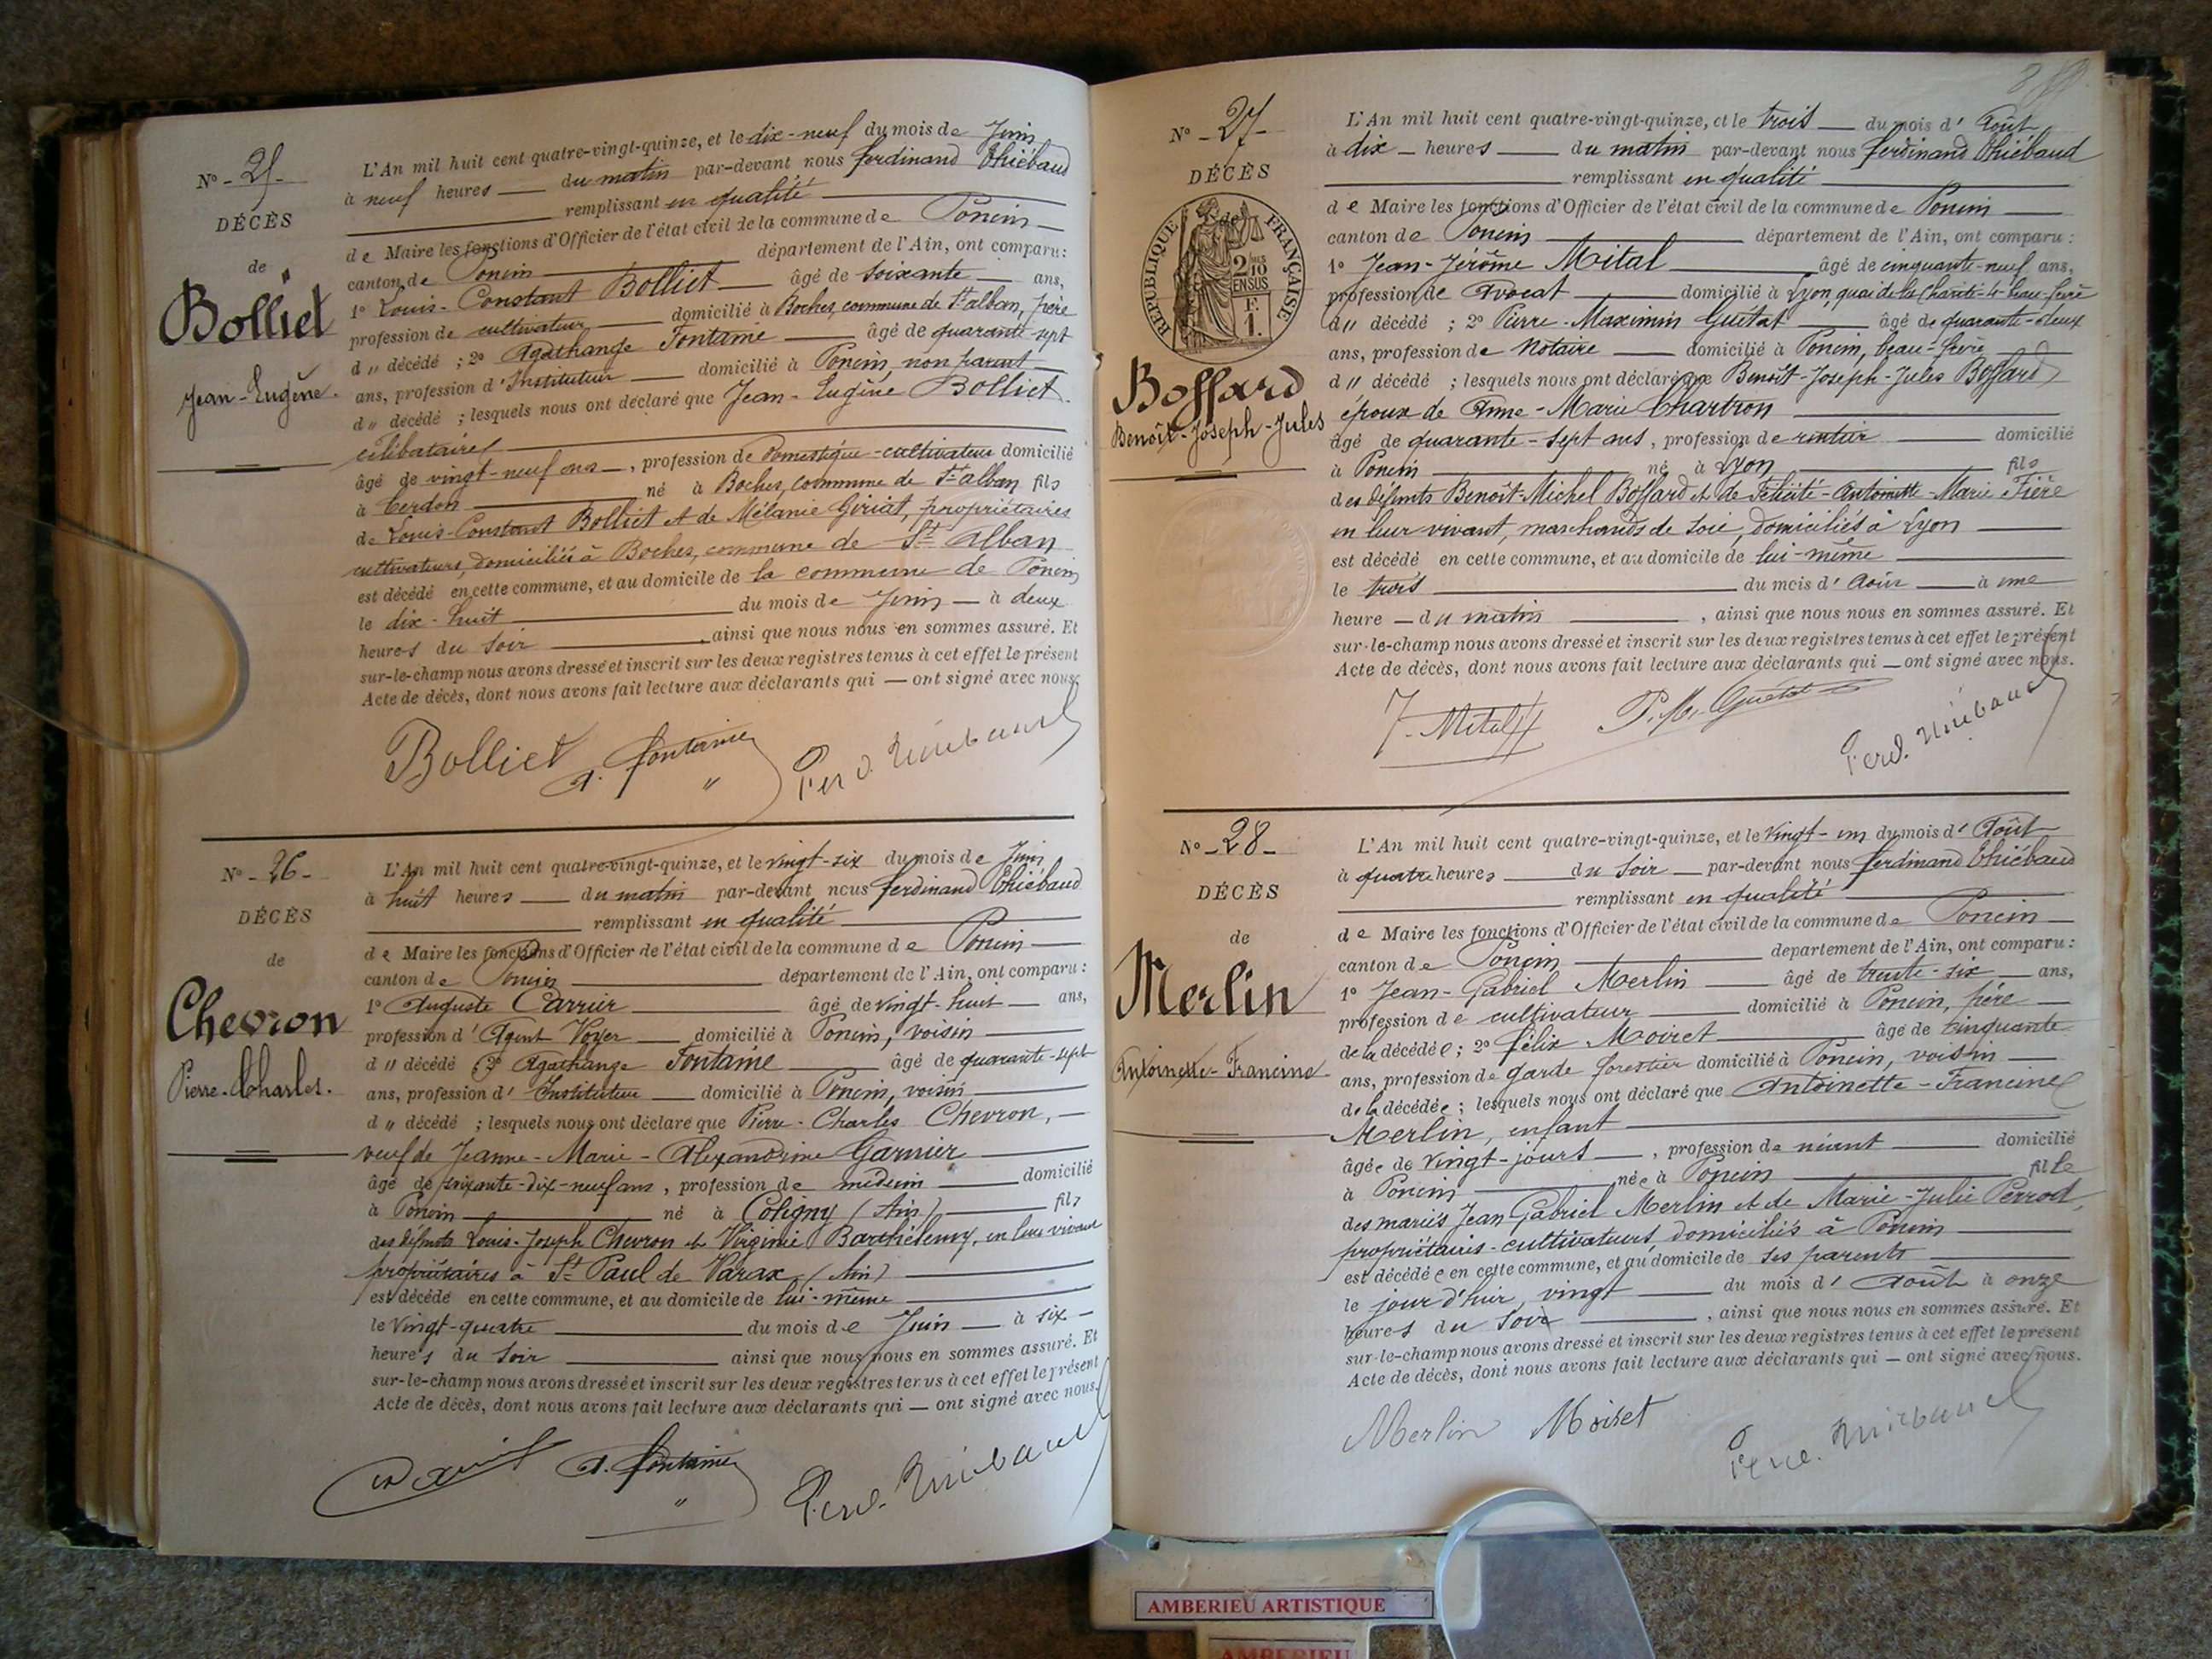 N° - 25 -
DÉCÈS
de
Bolliet
Jean-Eugène.
L'An mil huit cent quatre-vingt-quinze, et le dix-neuf du mois de Juin
à neuf heures — du matin par-devant nous Ferdinand Thiébaud
remplissant en qualité
de Maire les fonctions d'Officier de l'état civil de la commune de Poncin
canton de Poncin département de l'Ain, ont comparu :
1° Louis-Constant Bolliet âgé de soixante ans,
profession de cultivateur domicilié à Boches, commune de St alban, père
d" décédé ; 2° Agathange Fontaine âgé de quarante-sept
ans, profession d'Instituteur domicilié à Poncin, non parent
d" décédé ; lesquels nous ont déclaré que Jean-Eugène Bolliet.
célibataire
âgé de vingt-neuf ans, profession de Domestique-cultivateur domicilié
à Cerdon né à Boches, commune de St alban fils
de Louis-Constant Bolliet et de Mélanie Giriat, propriétaires
cultivateurs, domiciliés à Boches, commune de St Alban
est décédé en cette commune, et au domicile de la commune de Poncin
le dix-huit du mois de Juin à deux
heures du soir ainsi que nous nous en sommes assuré. Et
sur-le-champ nous avons dressé et inscrit sur les deux registres tenus à cet effet le présent
Acte de décès, dont nous avons fait lecture aux déclarants qui — ont signé avec nous.
Bolliet A. Fontaine Ferd. Thiébaud
N° - 26 -
DÉCÈS
de
Chevron
Pierre-Charles.
L'An mil huit cent quatre-vingt-quinze, et le vingt-six du mois de Juin
à huit heures — du matin par-devant nous Ferdinand Thiébaud
remplissant en qualité
de Maire les fonctions d'Officier de l'état civil de la commune de Poncin
canton de Poncin département de l'Ain, ont comparu :
1° Auguste Carrier âgé de vingt-huit ans,
profession d'Agent Voyer domicilié à Poncin, voisin
d" décédé ; 2° Agathange Fontaine âgé de quarante-sept
ans, profession d'Instituteur domicilié à Poncin, voisin
d" décédé ; lesquels nous ont déclaré que Pierre-Charles Chevron,
veuf de Jeanne-Marie-Alexandrine Garnier
âgé de soixante-dix-neuf ans, profession de médecin domicilié
à Poncin né à Coligny (Ain) fils
des défunts Louis-Joseph Chevron et Virginie Barthélemy, en leur vivant
propriétaires à St Paul de Varax (Ain)
est décédé en cette commune, et au domicile de lui-même
le vingt-quatre du mois de Juin à six
heures du soir ainsi que nous nous en sommes assuré. Et
sur-le-champ nous avons dressé et inscrit sur les deux registres tenus à cet effet le présent
Acte de décès, dont nous avons fait lecture aux déclarants qui — ont signé avec nous.
A. Fontaine Ferd. Thiébaud
N° - 27 -
DÉCÈS
de
RÉPUBLIQUE FRANÇAISE
2/10
EN SUS
F.
1.
Boffard
Benoît-Joseph-Jules
L'An mil huit cent quatre-vingt-quinze, et le trois du mois d'Août
à dix heures du matin par-devant nous Ferdinand Thiébaud
remplissant en qualité
de Maire les fonctions d'Officier de l'état civil de la commune de Poncin
canton de Poncin département de l'Ain, ont comparu :
1° Jean-Jérôme Mital âgé de cinquante-neuf ans,
profession de Avocat domicilié à Lyon, quai de la Charité 4 beau-frère
d" décédé ; 2° Pierre-Maximin Guétat âgé de quarante-deux
ans, profession de Notaire domicilié à Poncin, beau-frère
d" décédé ; lesquels nous ont déclaré que Benoît-Joseph-Jules Boffard
époux de Anne-Marie Chartron
âgé de quarante-sept ans, profession de rentier domicilié
à Poncin né à Lyon fils
des défunts Benoît-Michel Boffard et de Félicité-Antoinette-Marie Fière
en leur vivant, marchands de soie, domiciliés à Lyon
est décédé en cette commune, et au domicile de lui-même
le trois du mois d'Août à une
heure — du matin , ainsi que nous nous en sommes assuré. Et
sur-le-champ nous avons dressé et inscrit sur les deux registres tenus à cet effet le présent
Acte de décès, dont nous avons fait lecture aux déclarants qui — ont signé avec nous.
J. Mital P. M. Guétat Ferd. Thiébaud
N° - 28 -
DÉCÈS
de
Merlin
Antoinette-Francine
L'An mil huit cent quatre-vingt-quinze, et le vingt-un du mois d'Août
à quatre heures du soir par-devant nous Ferdinand Thiébaud
remplissant en qualité
de Maire les fonctions d'Officier de l'état civil de la commune de Poncin
canton de Poncin département de l'Ain, ont comparu :
1° Jean-Gabriel Merlin âgé de trente-six ans,
profession de cultivateur domicilié à Poncin, père
de la décédée ; 2° Félix Moiret âgé de cinquante
ans, profession de garde forestier domicilié à Poncin, voisin
de la décédée ; lesquels nous ont déclaré que Antoinette-Francine
Merlin, enfant
âgée de vingt-jours, profession de néant domicilié
à Poncin née à Poncin fille
des mariés Jean Gabriel Merlin et de Marie-Julie Perrod,
propriétaires-cultivateurs domiciliés à Poncin
est décédée en cette commune, et au domicile de ses parents
le jour d'hier, vingt du mois d'Août à onze
heures du soir , ainsi que nous nous en sommes assuré. Et
sur-le-champ nous avons dressé et inscrit sur les deux registres tenus à cet effet le présent
Acte de décès, dont nous avons fait lecture aux déclarants qui — ont signé avec nous.
Merlin Moiret Ferd. Thiébaud
AMBERIEU ARTISTIQUE
AMBERIEU